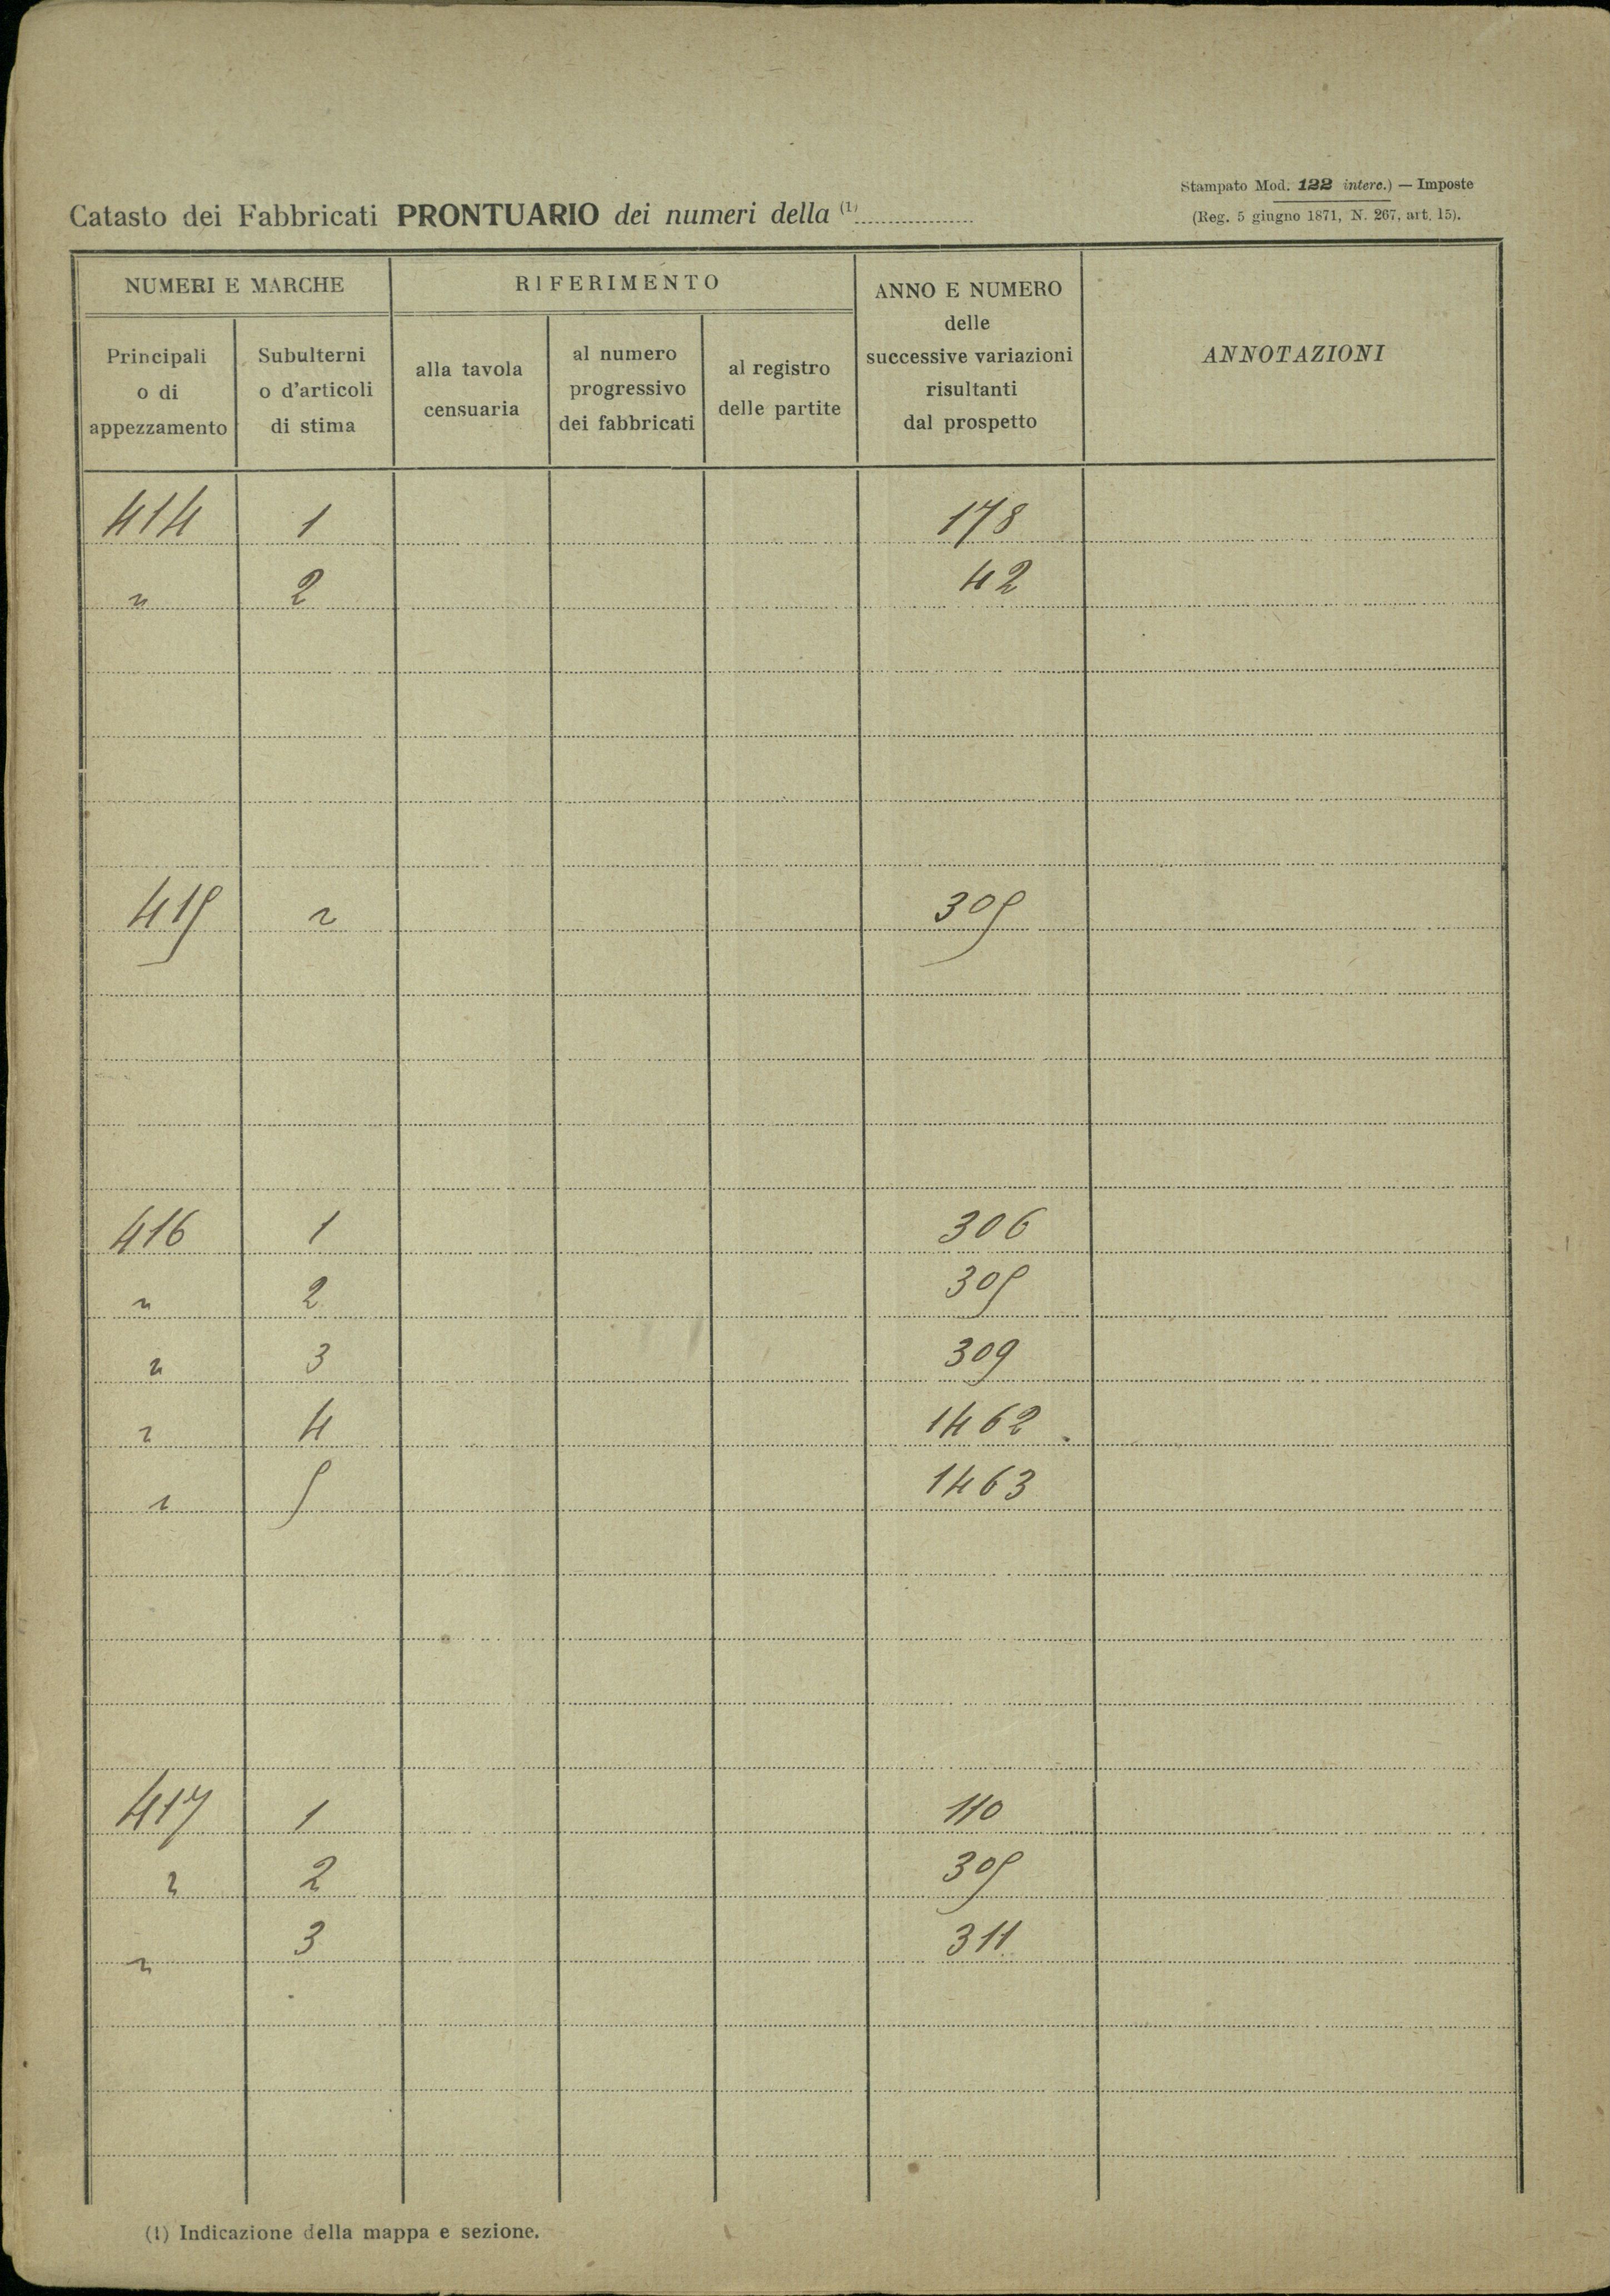 Stampato Mod. 122 interc.) — Imposte
(Reg. 5 giugno 1871, N. 267, art. 15).
Catasto dei Fabbricati PRONTUARIO dei numeri della (1)
NUMERI E MARCHE
Principali o di appezzamento
Subulterni o d'articoli di stima
RIFERIMENTO
alla tavola censuaria
al numero progressivo dei fabbricati
al registro delle partite
ANNO E NUMERO delle successive variazioni risultanti dal prospetto
ANNOTAZIONI
414 1 178
" 2 42
415 " 305
416 1 306
" 2 305
" 3 309
" 4 1462
" 5 1463
417 1 110
" 2 305
" 3 311
(1) Indicazione della mappa e sezione.